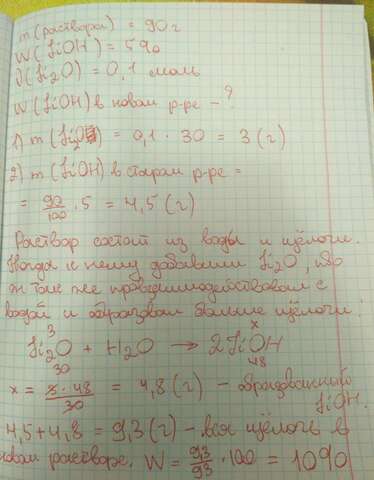 m(раствора) = 90 г
W(LiOH) = 5%
ν(Li₂O) = 0,1 моль
W(LiOH) в новом р-ре - ?
1) m(Li₂O) = 0,1 · 30 = 3 (г)
2) m(LiOH) в старом р-ре =
= 90/100 · 5 = 4,5 (г)
Раствор состоит из воды и щёлочи.
Когда к нему добавили Li₂O, то
он тоже прореагировал с
водой и образовал больше щёлочи:
3 x
Li₂O + H₂O → 2LiOH
30 48
x = 3·48/30 = 4,8 (г) - образованный
LiOH.
4,5+4,8 = 9,3 (г) - вся щёлочь в
новом растворе. W = 9,3/93 · 100 = 10%